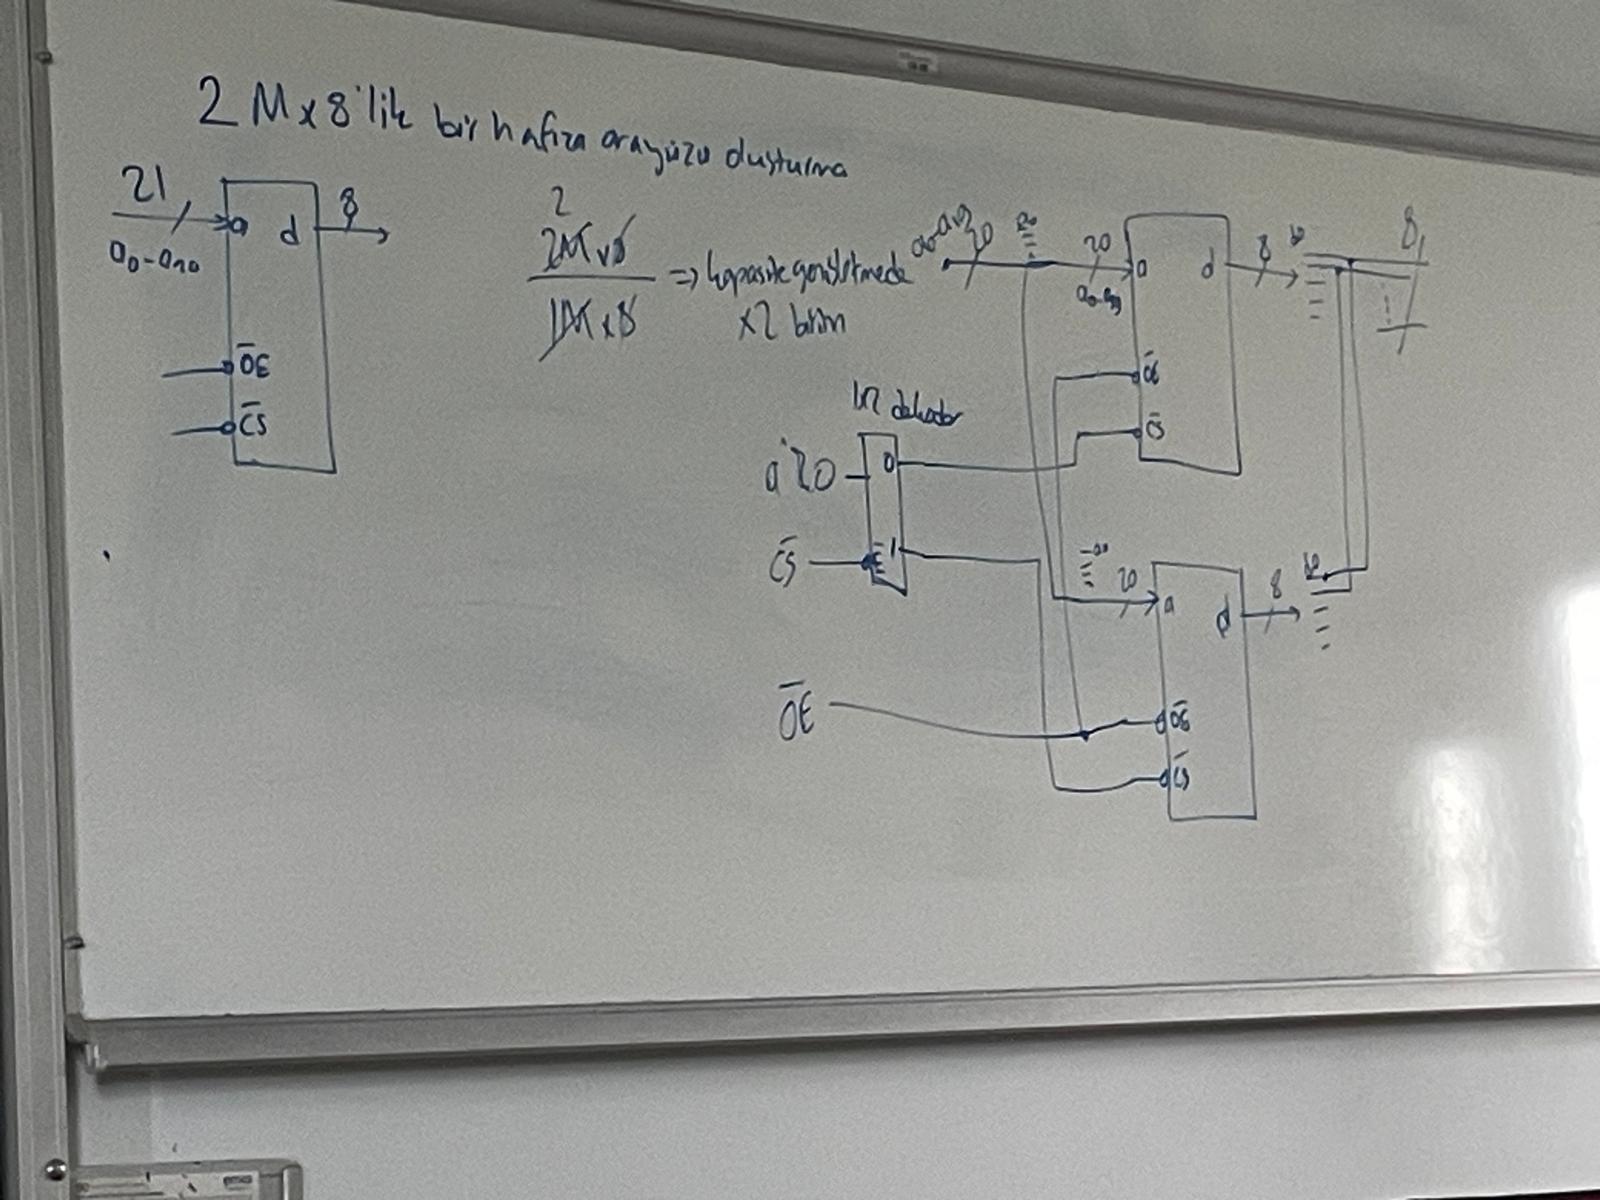 2 M x 8'lik bir hafıza arayüzü oluşturma
21
a0-a20
a
d
8
O̅E̅
C̅S̅
2
2M x 8
1M x 8
=> kapasite genişletmede
x2 birim
a0-a19
20
a0
20
a0-a19
a
d
8
8
O̅E̅
C̅S̅
1x2 dekoder
a20
0
1
C̅S̅
E
O̅E̅
a0
20
a
d
8
O̅E̅
C̅S̅